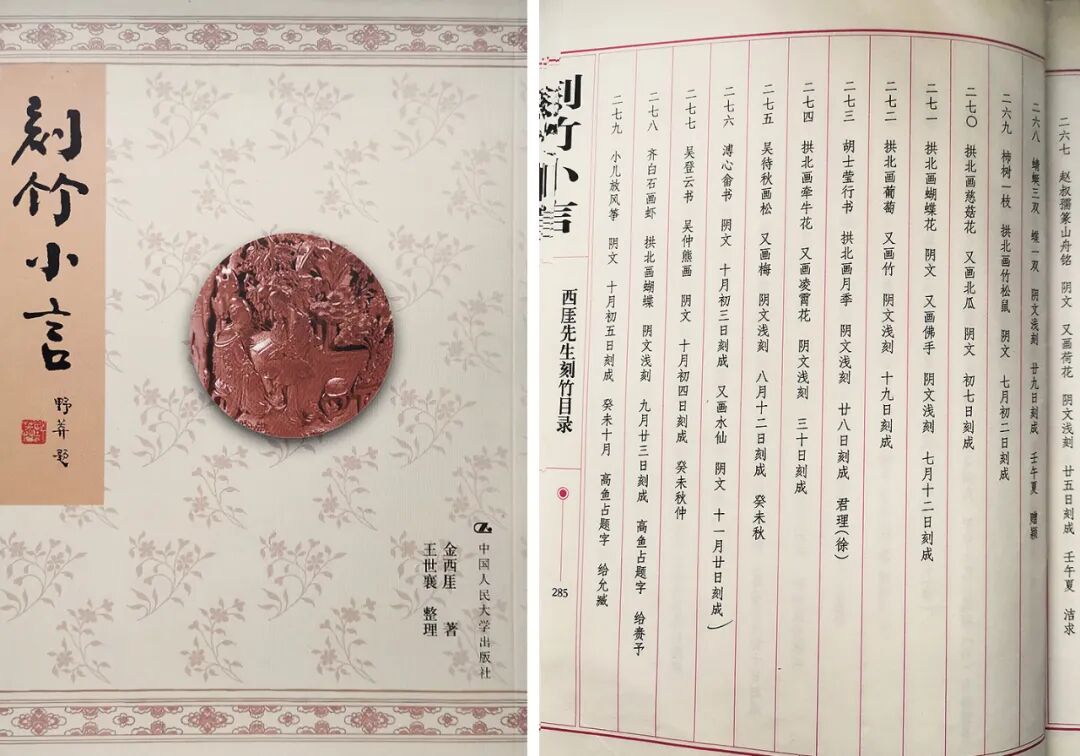 刻竹小言
野莽题
金西厓 著
王世襄 整理
中国人民大学出版社
二六七 赵叔孺篆山舟铭 阴文 又画荷花 阴文浅刻 廿五日刻成 壬午夏 洁求
二六八 蜻蜓三双 蝶一双 阴文浅刻 廿九日刻成 壬午夏 赠颖
二六九 柿树一枝 拱北画竹松鼠 阴文 七月初二日刻成
二七〇 拱北画慈菇花 又画北瓜 阴文 初七日刻成
二七一 拱北画蝴蝶花 阴文 又画佛手 阴文浅刻 七月十二日刻成
二七二 拱北画葡萄 又画竹 阴文浅刻 十九日刻成
二七三 胡士莹行书 拱北画月季 阴文浅刻 廿八日刻成 君理(徐)
二七四 拱北画牵牛花 又画凌霄花 阴文浅刻 三十日刻成
二七五 吴待秋画松 又画梅 阴文浅刻 八月十二日刻成 癸未秋
二七六 溥心畬书 阴文 十月初三日刻成 又画水仙 阴文 十一月廿日刻成
二七七 吴登云书 吴仲熊画 阴文 十月初四日刻成 癸未秋仲
二七八 齐白石画虾 拱北画蝴蝶 阴文浅刻 九月廿三日刻成 高鱼占题字 给赉予
二七九 小儿放风筝 阴文 十月初五日刻成 癸未十月 高鱼占题字 给允臧
刻竹小言
西厓先生刻竹目录
285